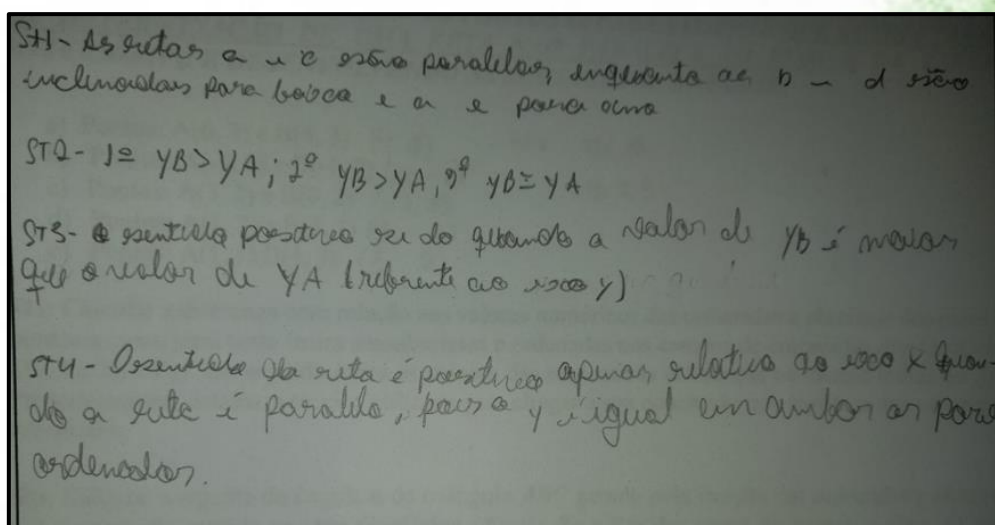 ST1- As retas a e c estão paralelas, enquanto as b - d são
inclinadas para baixo e a e para cima
ST2- 1º YB > YA; 2º YB > YA, 3º YB = YA
ST3- O sentido positivo se do quando a valor de YB é maior
que o valor de YA (referente ao eixo y)
ST4- O sentido da reta é positivo apenas relativo ao eixo x quan-
do a reta é paralela, pois o y é igual em ambos os pares
ordenados.